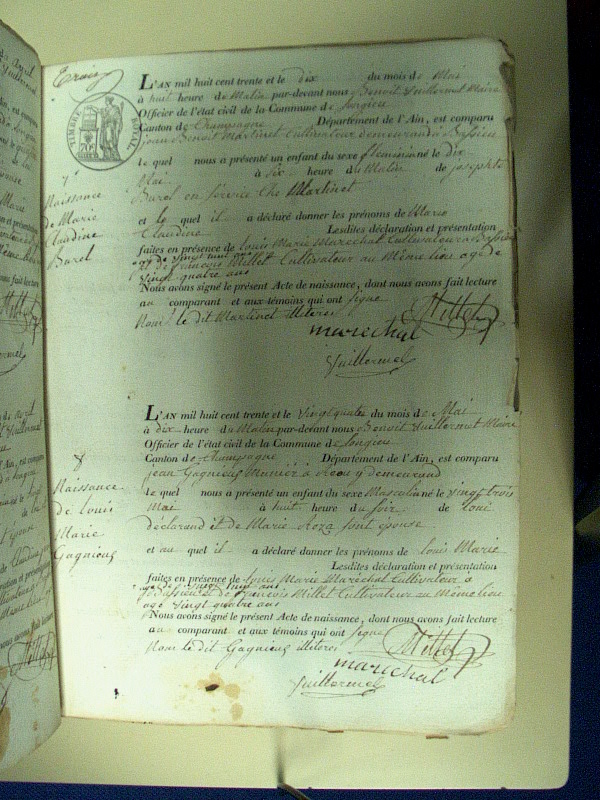 TIMBRE ROYAL
7
Naissance
de Marie
Claudine
Burel
L'AN mil huit cent trente et le dix du mois de Mai
à huit heure de Matin par-devant nous Benoit Guillermet Maire
Officier de l'état civil de la Commune de Songieu
Canton de Champagne Département de l'Ain, est comparu
jean Benoit Martinet Cultivateur demeurand à
Le quel nous a présenté un enfant du sexe féminin né le dix
Mai à six heure du Matin de josephte
Burel en service che Martinet
et le quel il a déclaré donner les prénoms de Marie
Claudine Lesdites déclaration et présentation
faites en présence de louis Marie Marechal Cultivateur à
age de vingt huit ans
et de françois Millet Cultivateur au Même lieu age de
vingt quatre ans
Nous avons signé le présent Acte de naissance, dont nous avons fait lecture
au comparant et aux témoins qui ont signe
Non le dit Martinet illeteré
Millet
marechal
Guillermet
8
Naissance
de louis
Marie
Gagnieux
L'AN mil huit cent trente et le vingt quatre du mois de Mai
à dix heure du Matin par-devant nous Benoit Guillermet Maire
Officier de l'état civil de la Commune de Songieu
Canton de Champagne Département de l'Ain, est comparu
jean Gagnieux Munier à y demeurand
Le quel nous a présenté un enfant du sexe Masculin né le vingt trois
Mai à huit heure du soir de lui
déclarand et de Marie Roza sont épouse
et au quel il a déclaré donner les prénoms de louis Marie
Lesdites déclaration et présentation
faites en présence de louis Marie Maréchal Cultivateur à
age de vingt huit ans
et de francois Millet Cultivateur au Même lieu
age vingt quatre ans
Nous avons signé le présent Acte de naissance, dont nous avons fait lecture
au comparant et aux témoins qui ont signe
Non le dit Gagnieux illeteré
Millet
marechal
Guillermet